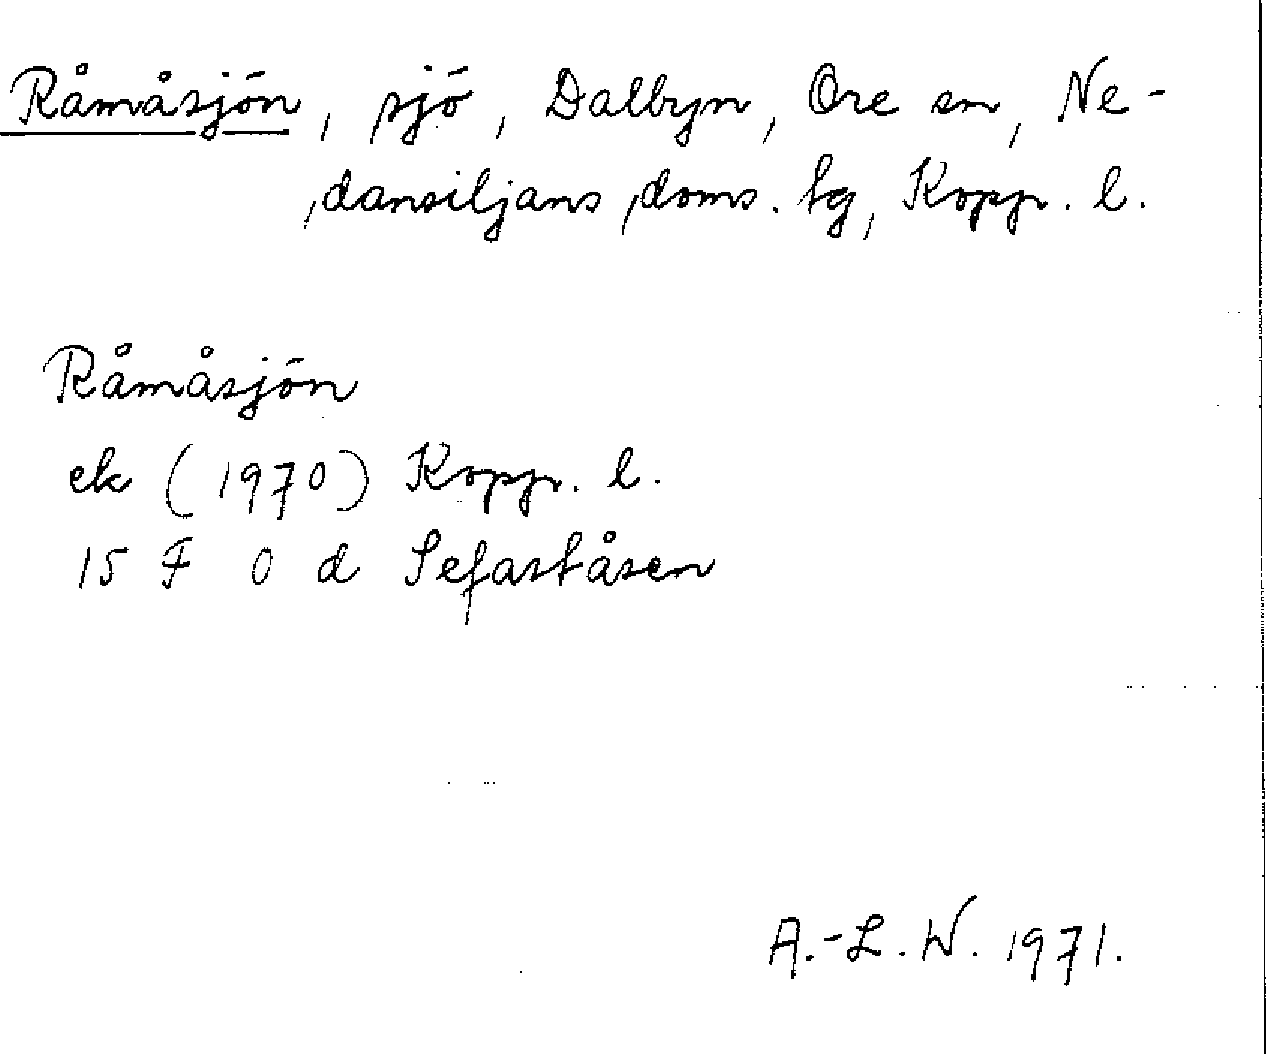 Råmåsjön, sjö, Dalbyn, Ore sn, Ne-
dansiljans doms. tg, Kopp. l.
Råmåsjön
ek (1970) Kopp. l.
15 F 0 d Sefaståsen
A.-L. W. 1971.